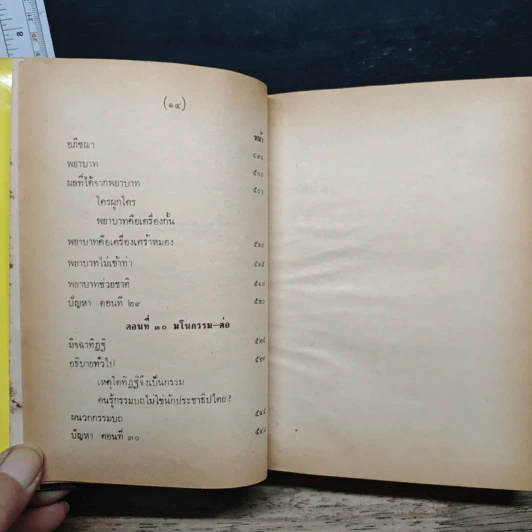 (๑๔)
หน้า
อภิชฌา ๔๙๔
พยาบาท ๕๐๐
ผลที่ได้จากพยาบาท ๕๐๖
ใครผูกใคร
พยาบาทคือเครื่องกั้น
พยาบาทคือเครื่องเศร้าหมอง ๕๑๐
พยาบาทไม่เข้าท่า ๕๑๕
พยาบาทช่วยชาติ
ปัญหา ตอนที่ ๒๙ ๕๒๐
ตอนที่ ๓๐ มโนกรรม-ต่อ
มิจฉาทิฏฐิ ๕๒๕
อธิบายทั่วไป
เหตุใดทิฏฐิจึงเป็นกรรม
คนรู้กรรมบถไม่ใช่นักประชาธิปไตย?
ผนวกกรรมบถ
ปัญหา ตอนที่ ๓๐
8